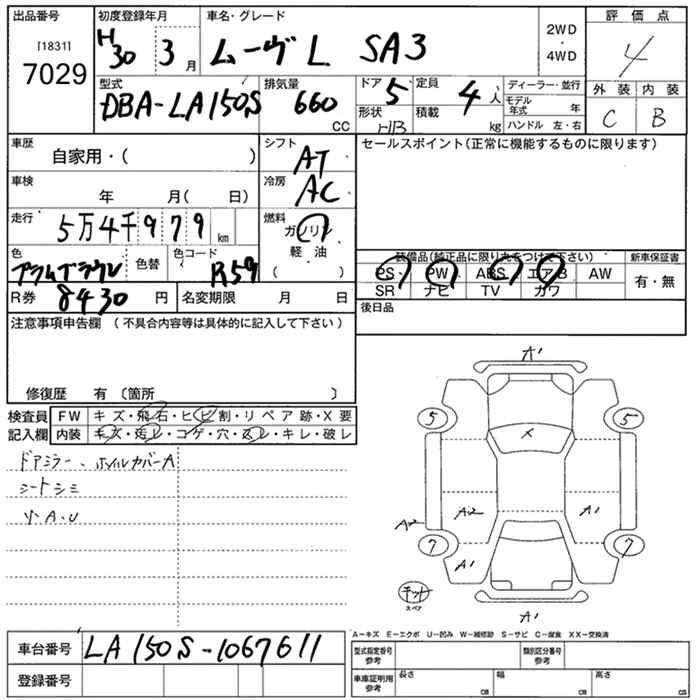 出品番号
[1831]
7029
初度登録年月
H30 3月
車名・グレード
ムーヴL SA3
2WD
・
4WD
評価点
4
外装 内装
C B
型式
DBA-LA150S
排気量
660
CC
ドア
5
形状
HB
定員
4人
積載
kg
ディーラー・並行
モデル年式 年
ハンドル 左・右
車歴
自家用・( )
シフト
AT
車検
年 月( 日)
冷房
AC
走行
5万4千979km
燃料
ガソリン
軽・油
( )
色
プラムブラウン
色替
色コード
R59
R券
8430円
名変期限 月 日
セールスポイント(正常に機能するものに限ります)
装備品(純正品に限り丸をつけて下さい)
新車保証書
PS PW ABS エアB AW
SR ナビ TV カワ
有・無
後日品
注意事項申告欄 (不具合内容等は具体的に記入して下さい)
修復歴 有 〔箇所 〕
検査員
記入欄
FW キズ・飛石・ヒビ割・リペア跡・X要
内装 キズ・汚レ・コゲ・穴・スレ・キレ・破レ
ドアミラー、ホイルカバーA
シートシミ
リ・A・U
A1
5
5
X
A2
A2
A1
7
7
A1
キット
スペア
A1
A=キズ E=エクボ U=凹み W=補修跡 S=サビ C=腐食 XX=交換済
車台番号
LA150S-1067611
登録番号
型式指定番号
参考
類別区分番号
参考
車庫証明用
参考
長さ
cm
幅
cm
高さ
cm